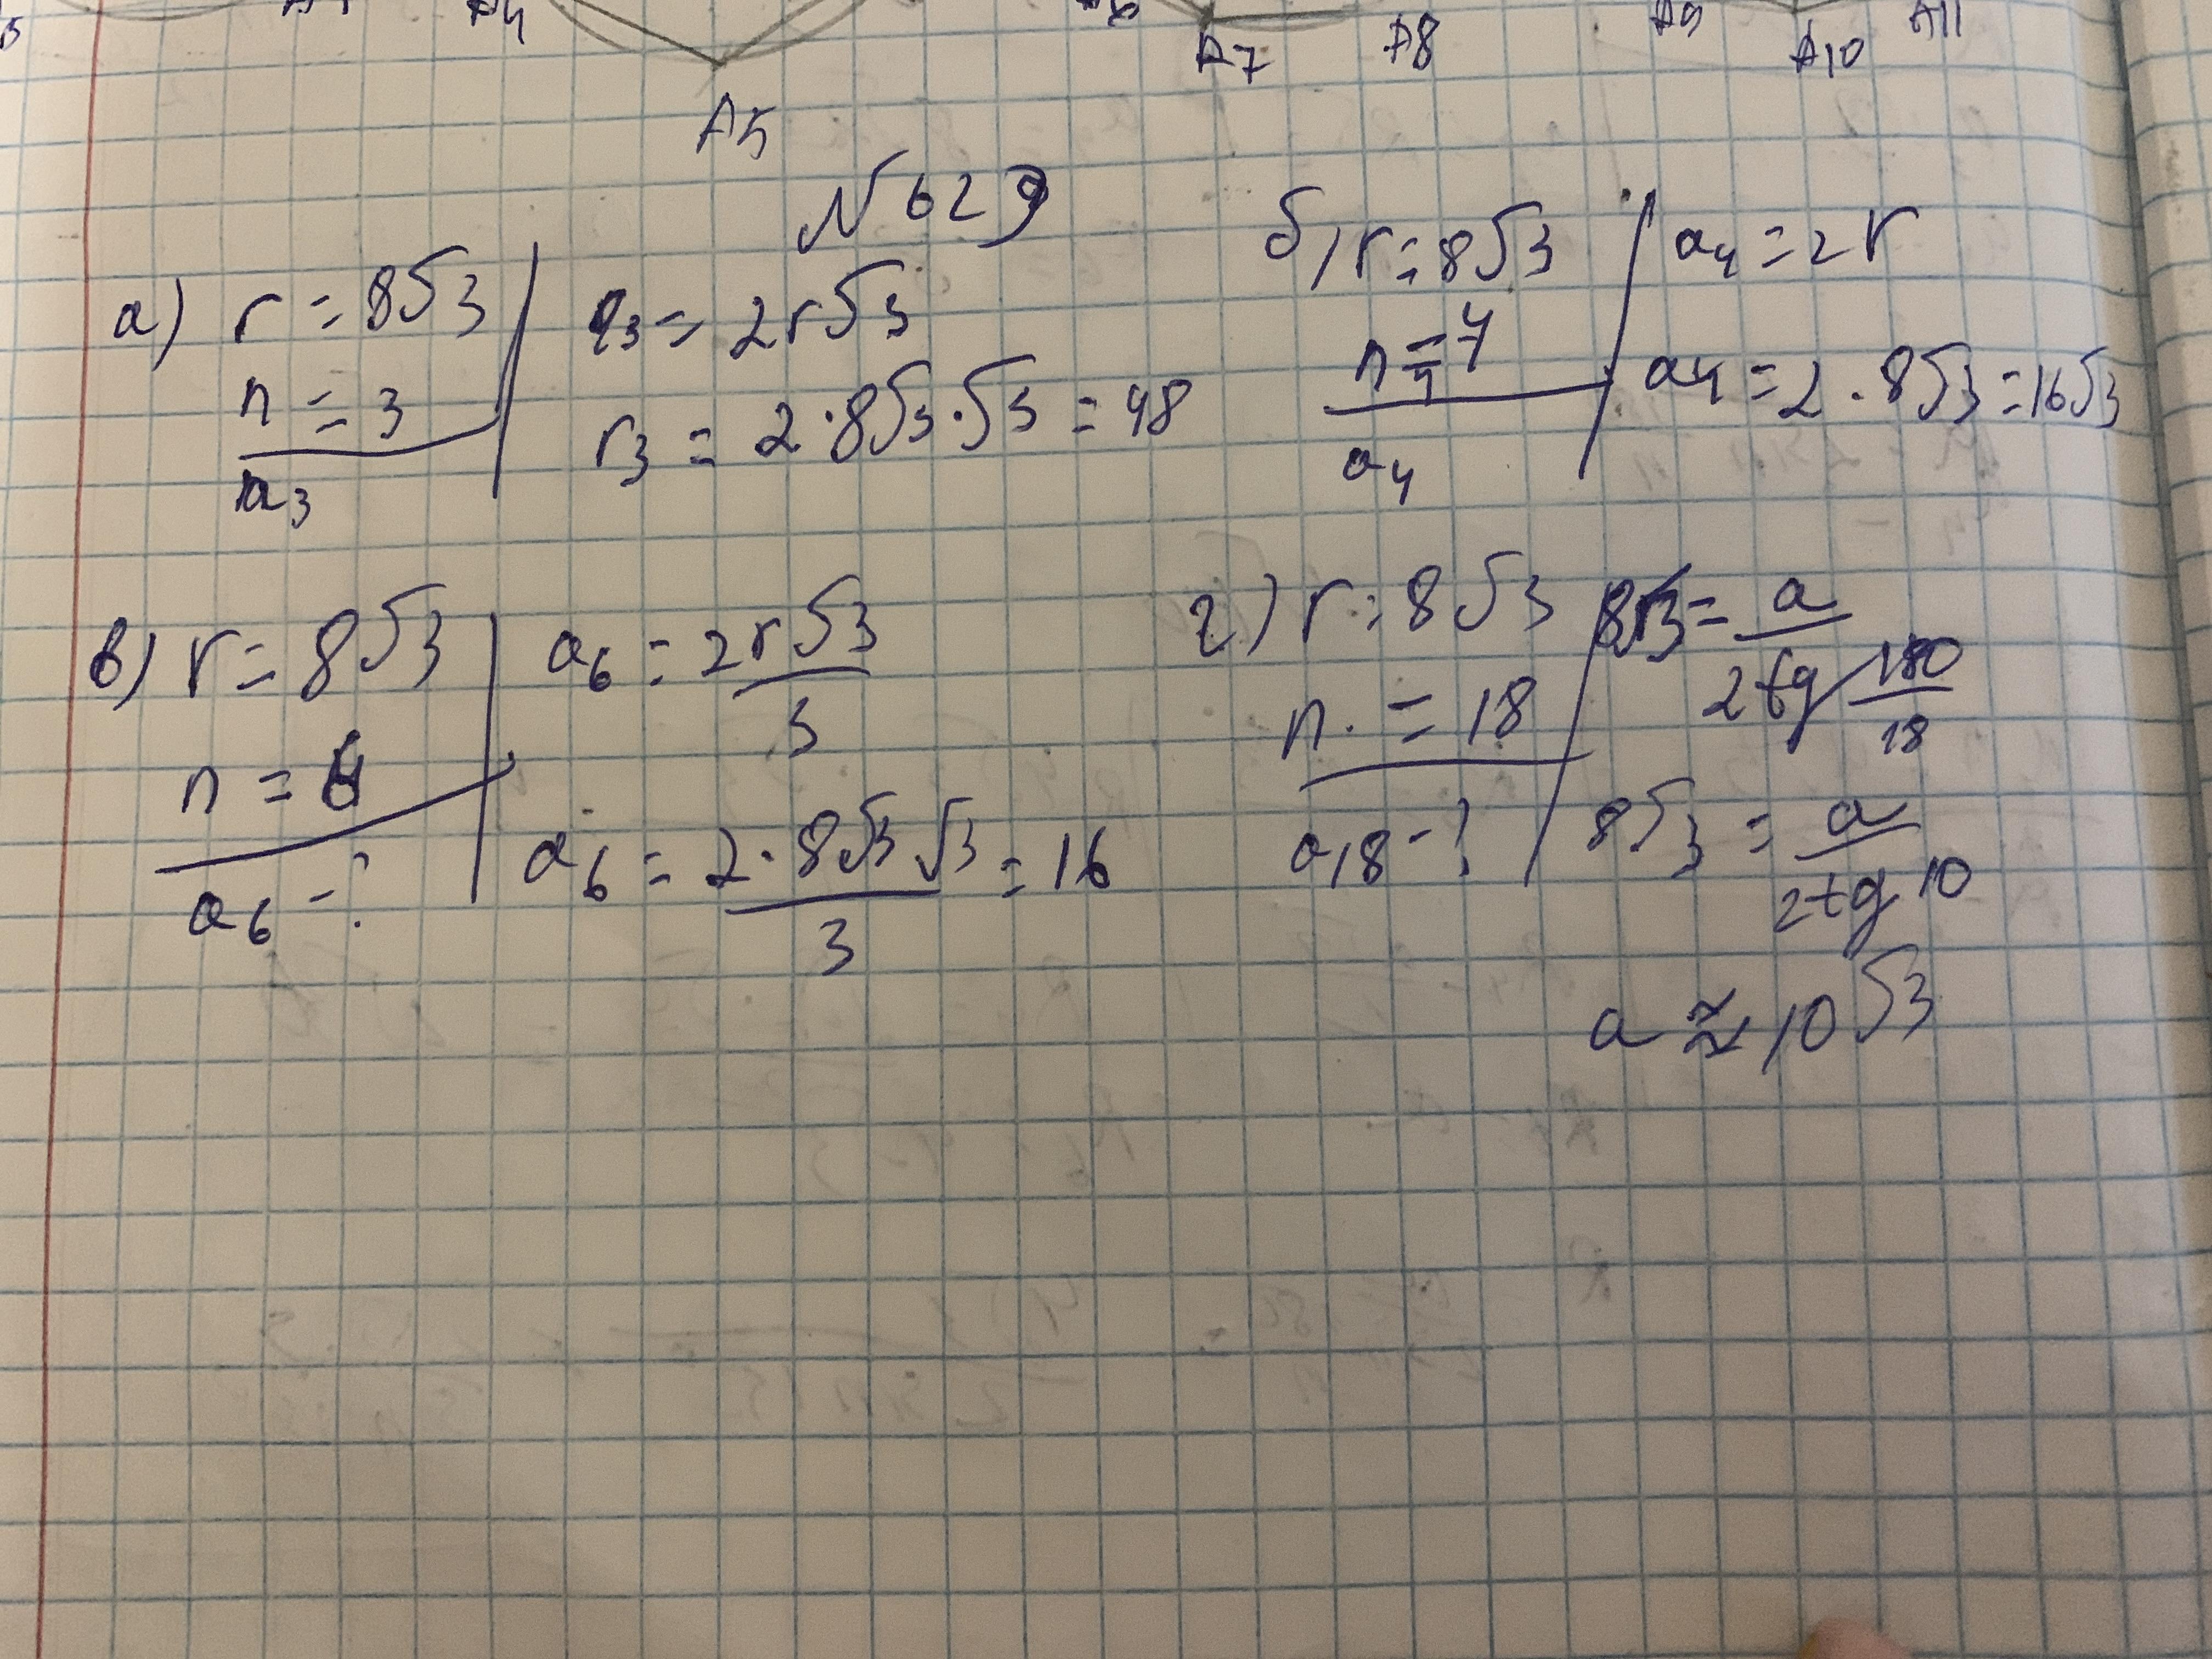 A4 A6 A8 A9 A11
A7 A10
A5
N 629
а) r = 8√3
n = 3
a3
a3 = 2r√3
r3 = 2·8√3·√3 = 48
б) r = 8√3
n = 4
a4
a4 = 2r
a4 = 2·8√3 = 16√3
в) r = 8√3
n = 6
a6 - ?
a6 = 2r√3 / 3
a6 = 2·8√3 √3 / 3 = 16
г) r = 8√3
n. = 18
a18 - ?
8√3 = a / 2tg 180/18
8√3 = a / 2tg 10
a ≈ 10√3